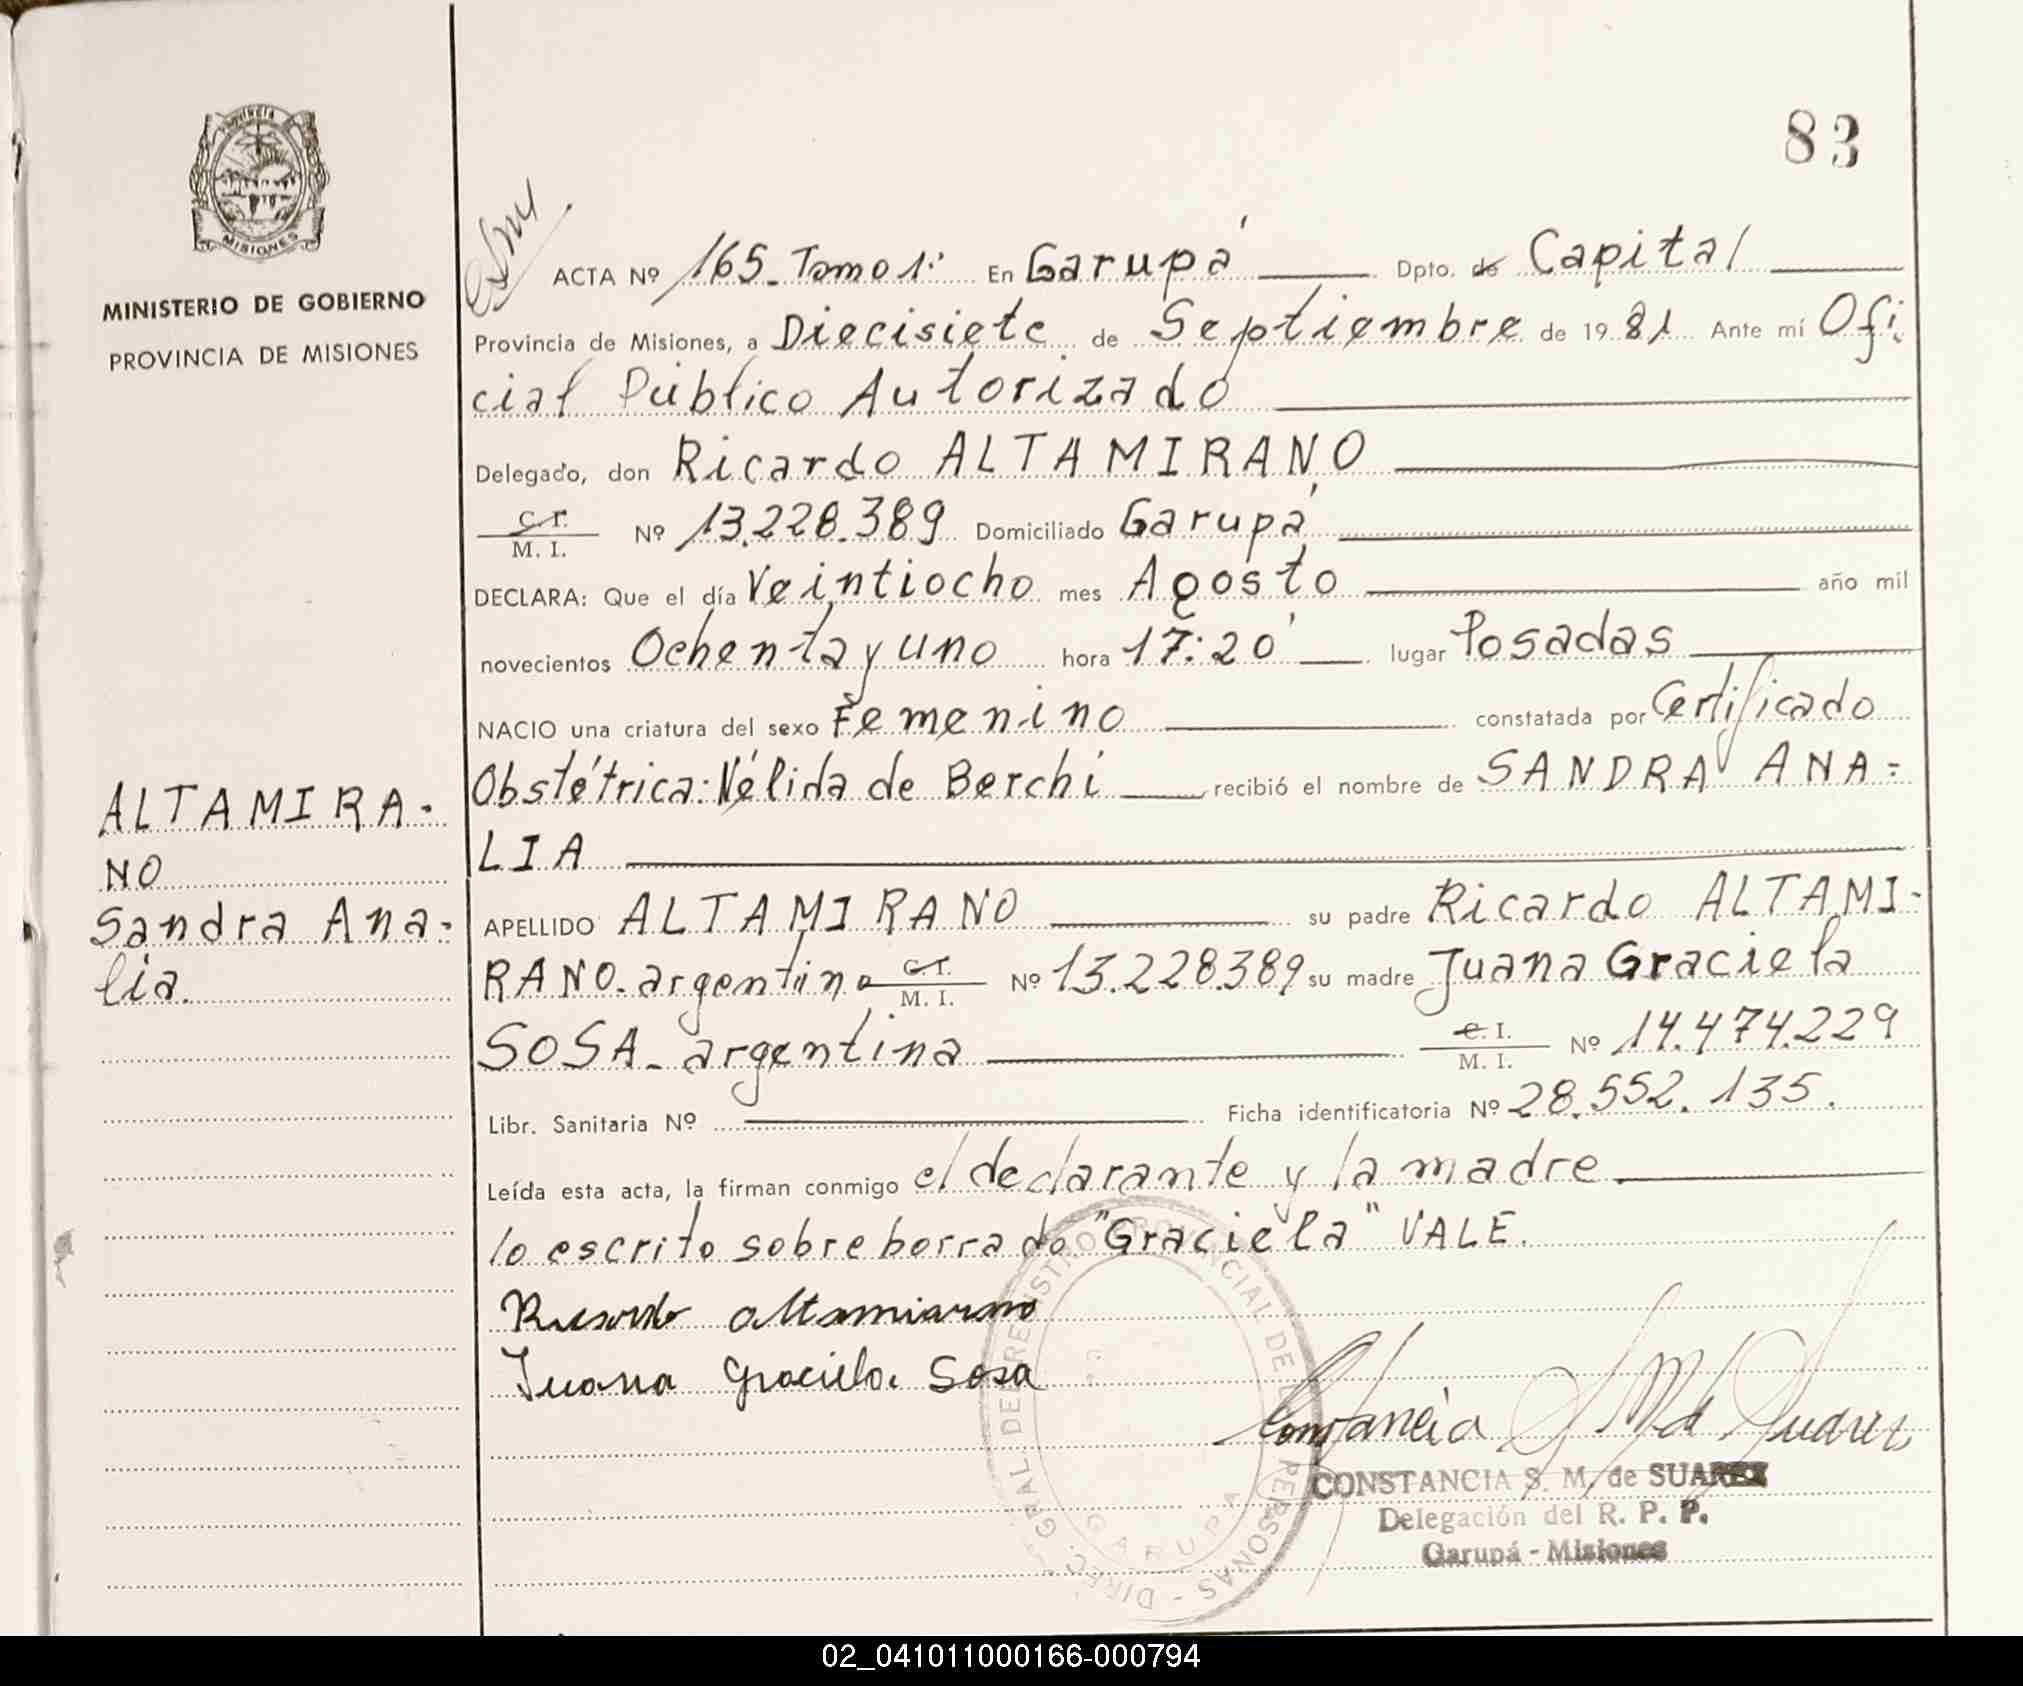 83
Provincia
MISIONES
MINISTERIO DE GOBIERNO
PROVINCIA DE MISIONES
ACTA Nº 165_ Tomo 1º En Garupá Dpto. de Capital
Provincia de Misiones, a Diecisiete de Septiembre de 1981 Ante mí Ofi
cial Público Autorizado
Delegado, don Ricardo ALTAMIRANO
C. I.
M. I. Nº 13.228.389 Domiciliado Garupá
DECLARA: Que el día Veintiocho mes Agosto año mil
novecientos Ochenta y uno hora 17:20' lugar Posadas
NACIO una criatura del sexo Femenino constatada por Certificado
Obstétrica: Nélida de Berchi recibió el nombre de SANDRA ANA=
LIA
ALTAMIRA-
NO
Sandra Ana-
lia.
APELLIDO ALTAMIRANO su padre Ricardo ALTAMI-
RANO-argentino C. I.
M. I. Nº 13.228.389 su madre Juana Graciela
SOSA_ argentina C. I.
M. I. Nº 14.474.229
Libr. Sanitaria Nº Ficha identificatoria Nº 28.552.135.
Leída esta acta, la firman conmigo el declarante y la madre
lo escrito sobre borrado "Graciela" VALE.
Ricardo altamirano
Juana Graciela Sosa
Constancia S M de Suarez
CONSTANCIA S. M. de SUAREZ
Delegación del R. P. P.
Garupá - Misiones
DIREC. GRAL DEL REGISTRO PROVINCIAL DE PERSONAS -
GARUPA
02_041011000166-000794